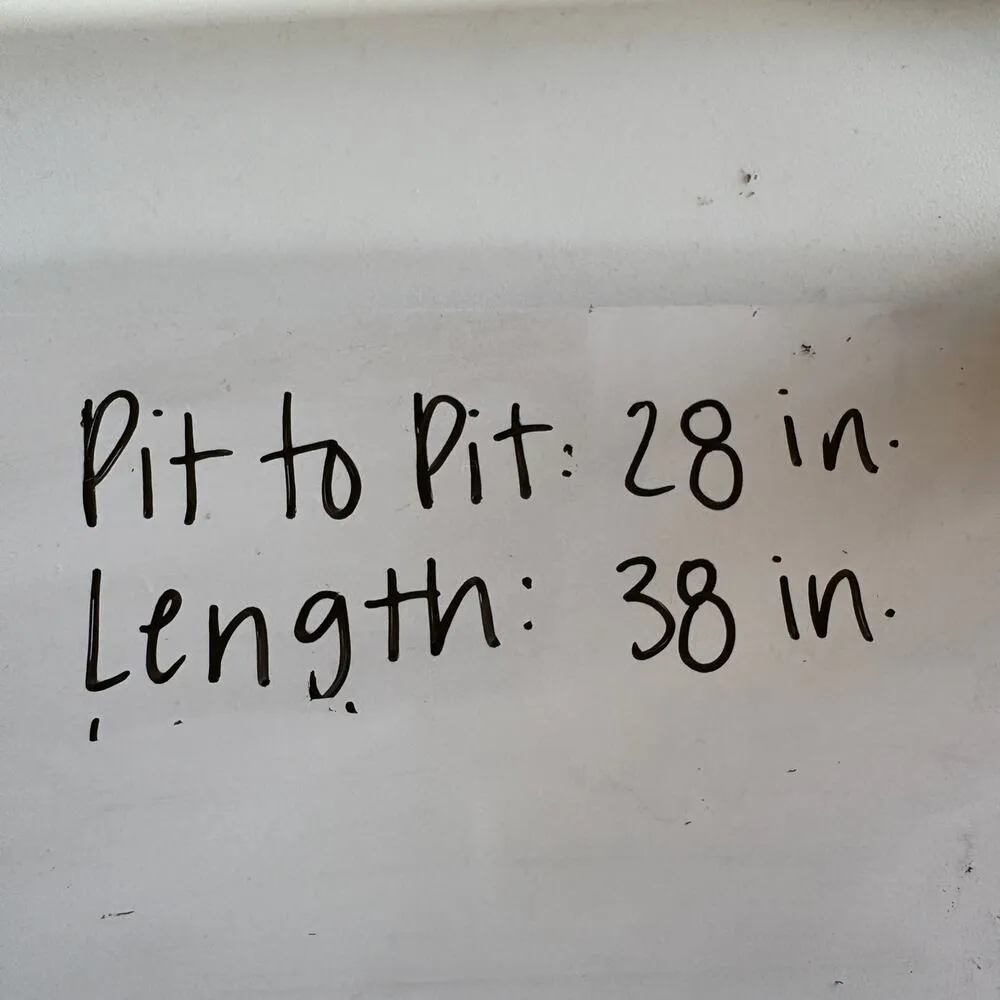 Pit to Pit: 28 in.
Length: 38 in.